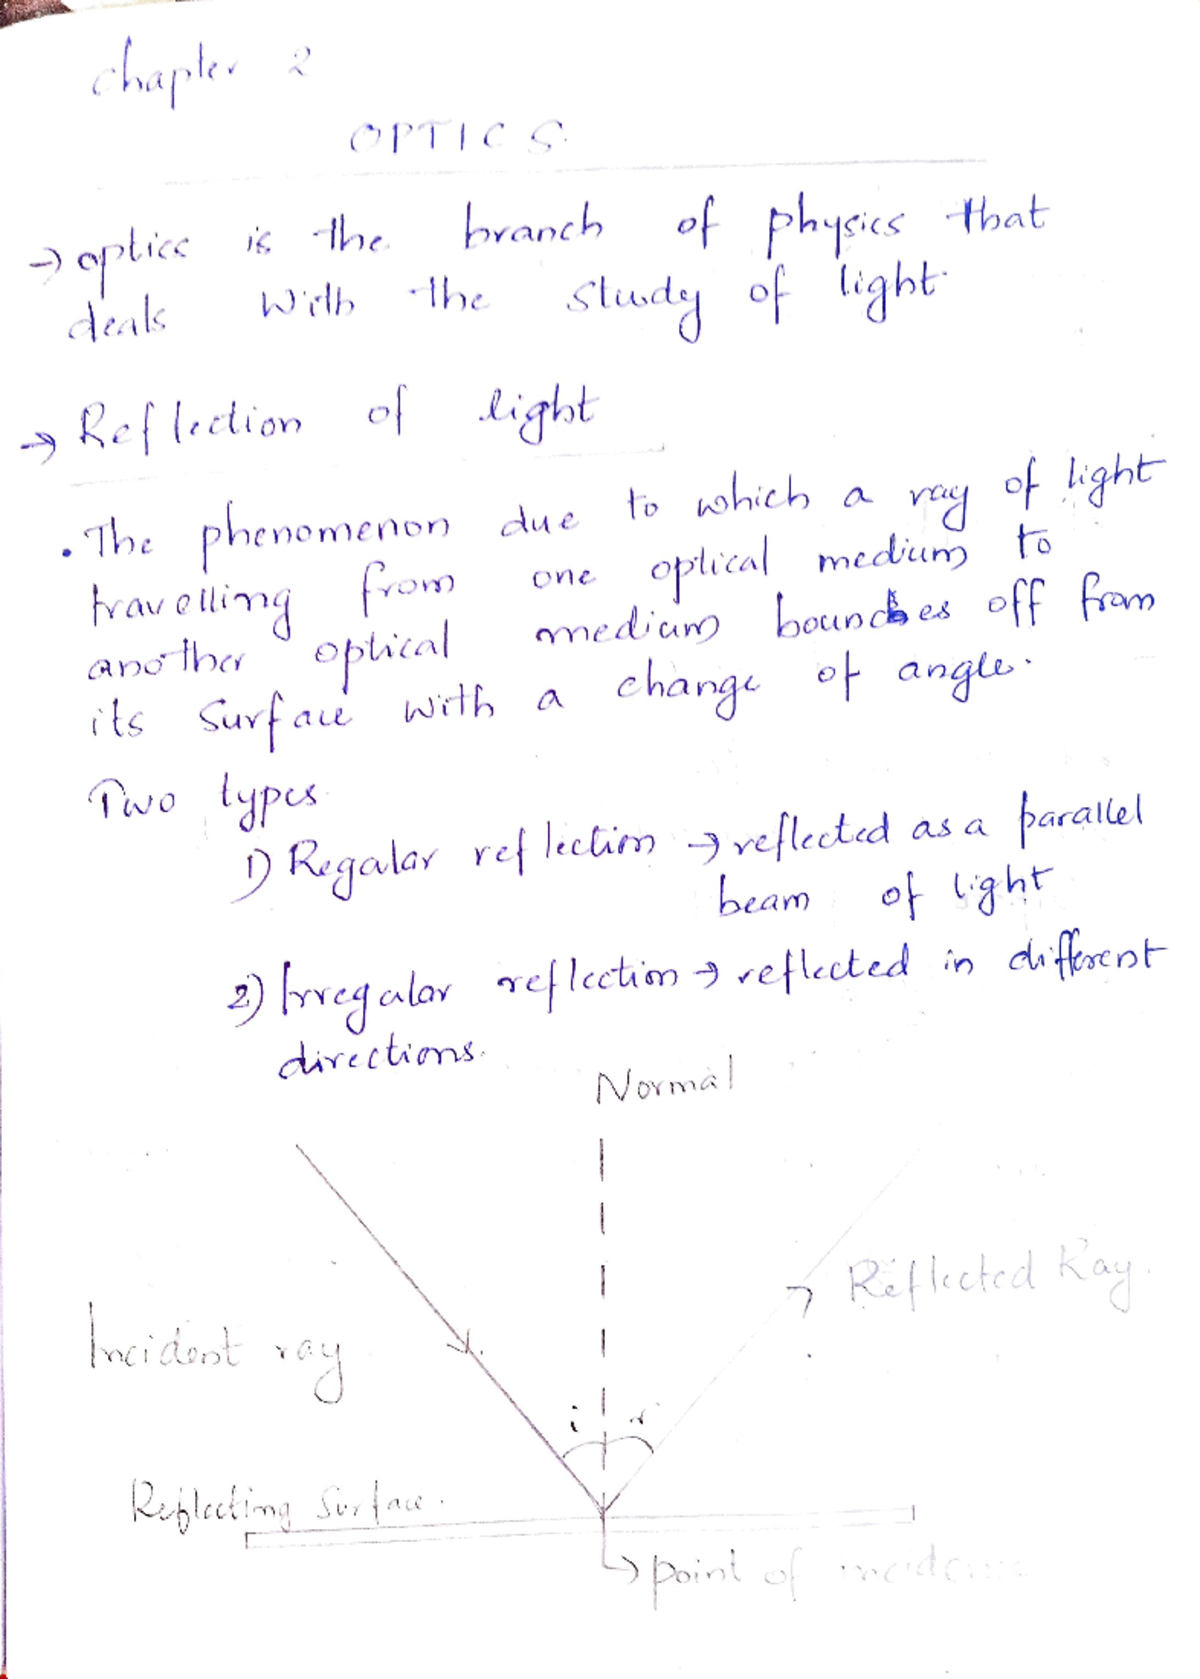 chapter 2
OPTICS
→ optics is the branch of physics that
deals with the study of light.
→ Reflection of light
• The phenomenon due to which a ray of light
travelling from one optical medium to
another optical medium bounces off from
its surface with a change of angle.
Two types
1) Regular reflection → reflected as a parallel
beam of light
2) Irregular reflection → reflected in different
directions.
Normal
Reflected Ray.
Incident ray
i r
Reflecting Surface.
↳ point of incidence